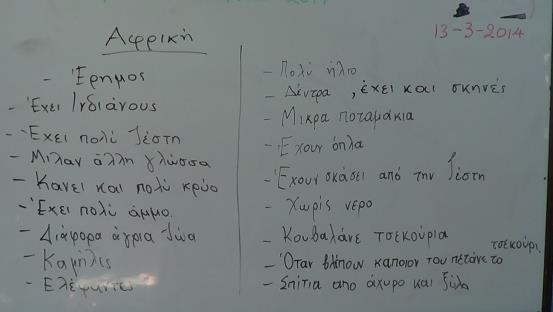 Αφρική
13-3-2014
- Έρημος
- Έχει Ινδιάνους
- Έχει πολύ ζέστη
- Μιλαν άλλη γλώσσα
- Κανει και πολύ κρύο
- Έχει πολύ άμμο.
- Διάφορα άγρια ζώα
- Καμήλες
- Ελέφαντες
- Πολύ ήλιο
- Δέντρα, έχει και σκηνές
- Μικρα ποταμάκια
- Έχουν όπλα
- Έχουν σκάσει από την ζέστη
- Χωρίς νερο
- Κουβαλάνε τσεκούρια
- Όταν βλέπουν καποιον του πετάνε το τσεκούρι
- Σπίτια απο άχυρο και ξύλα